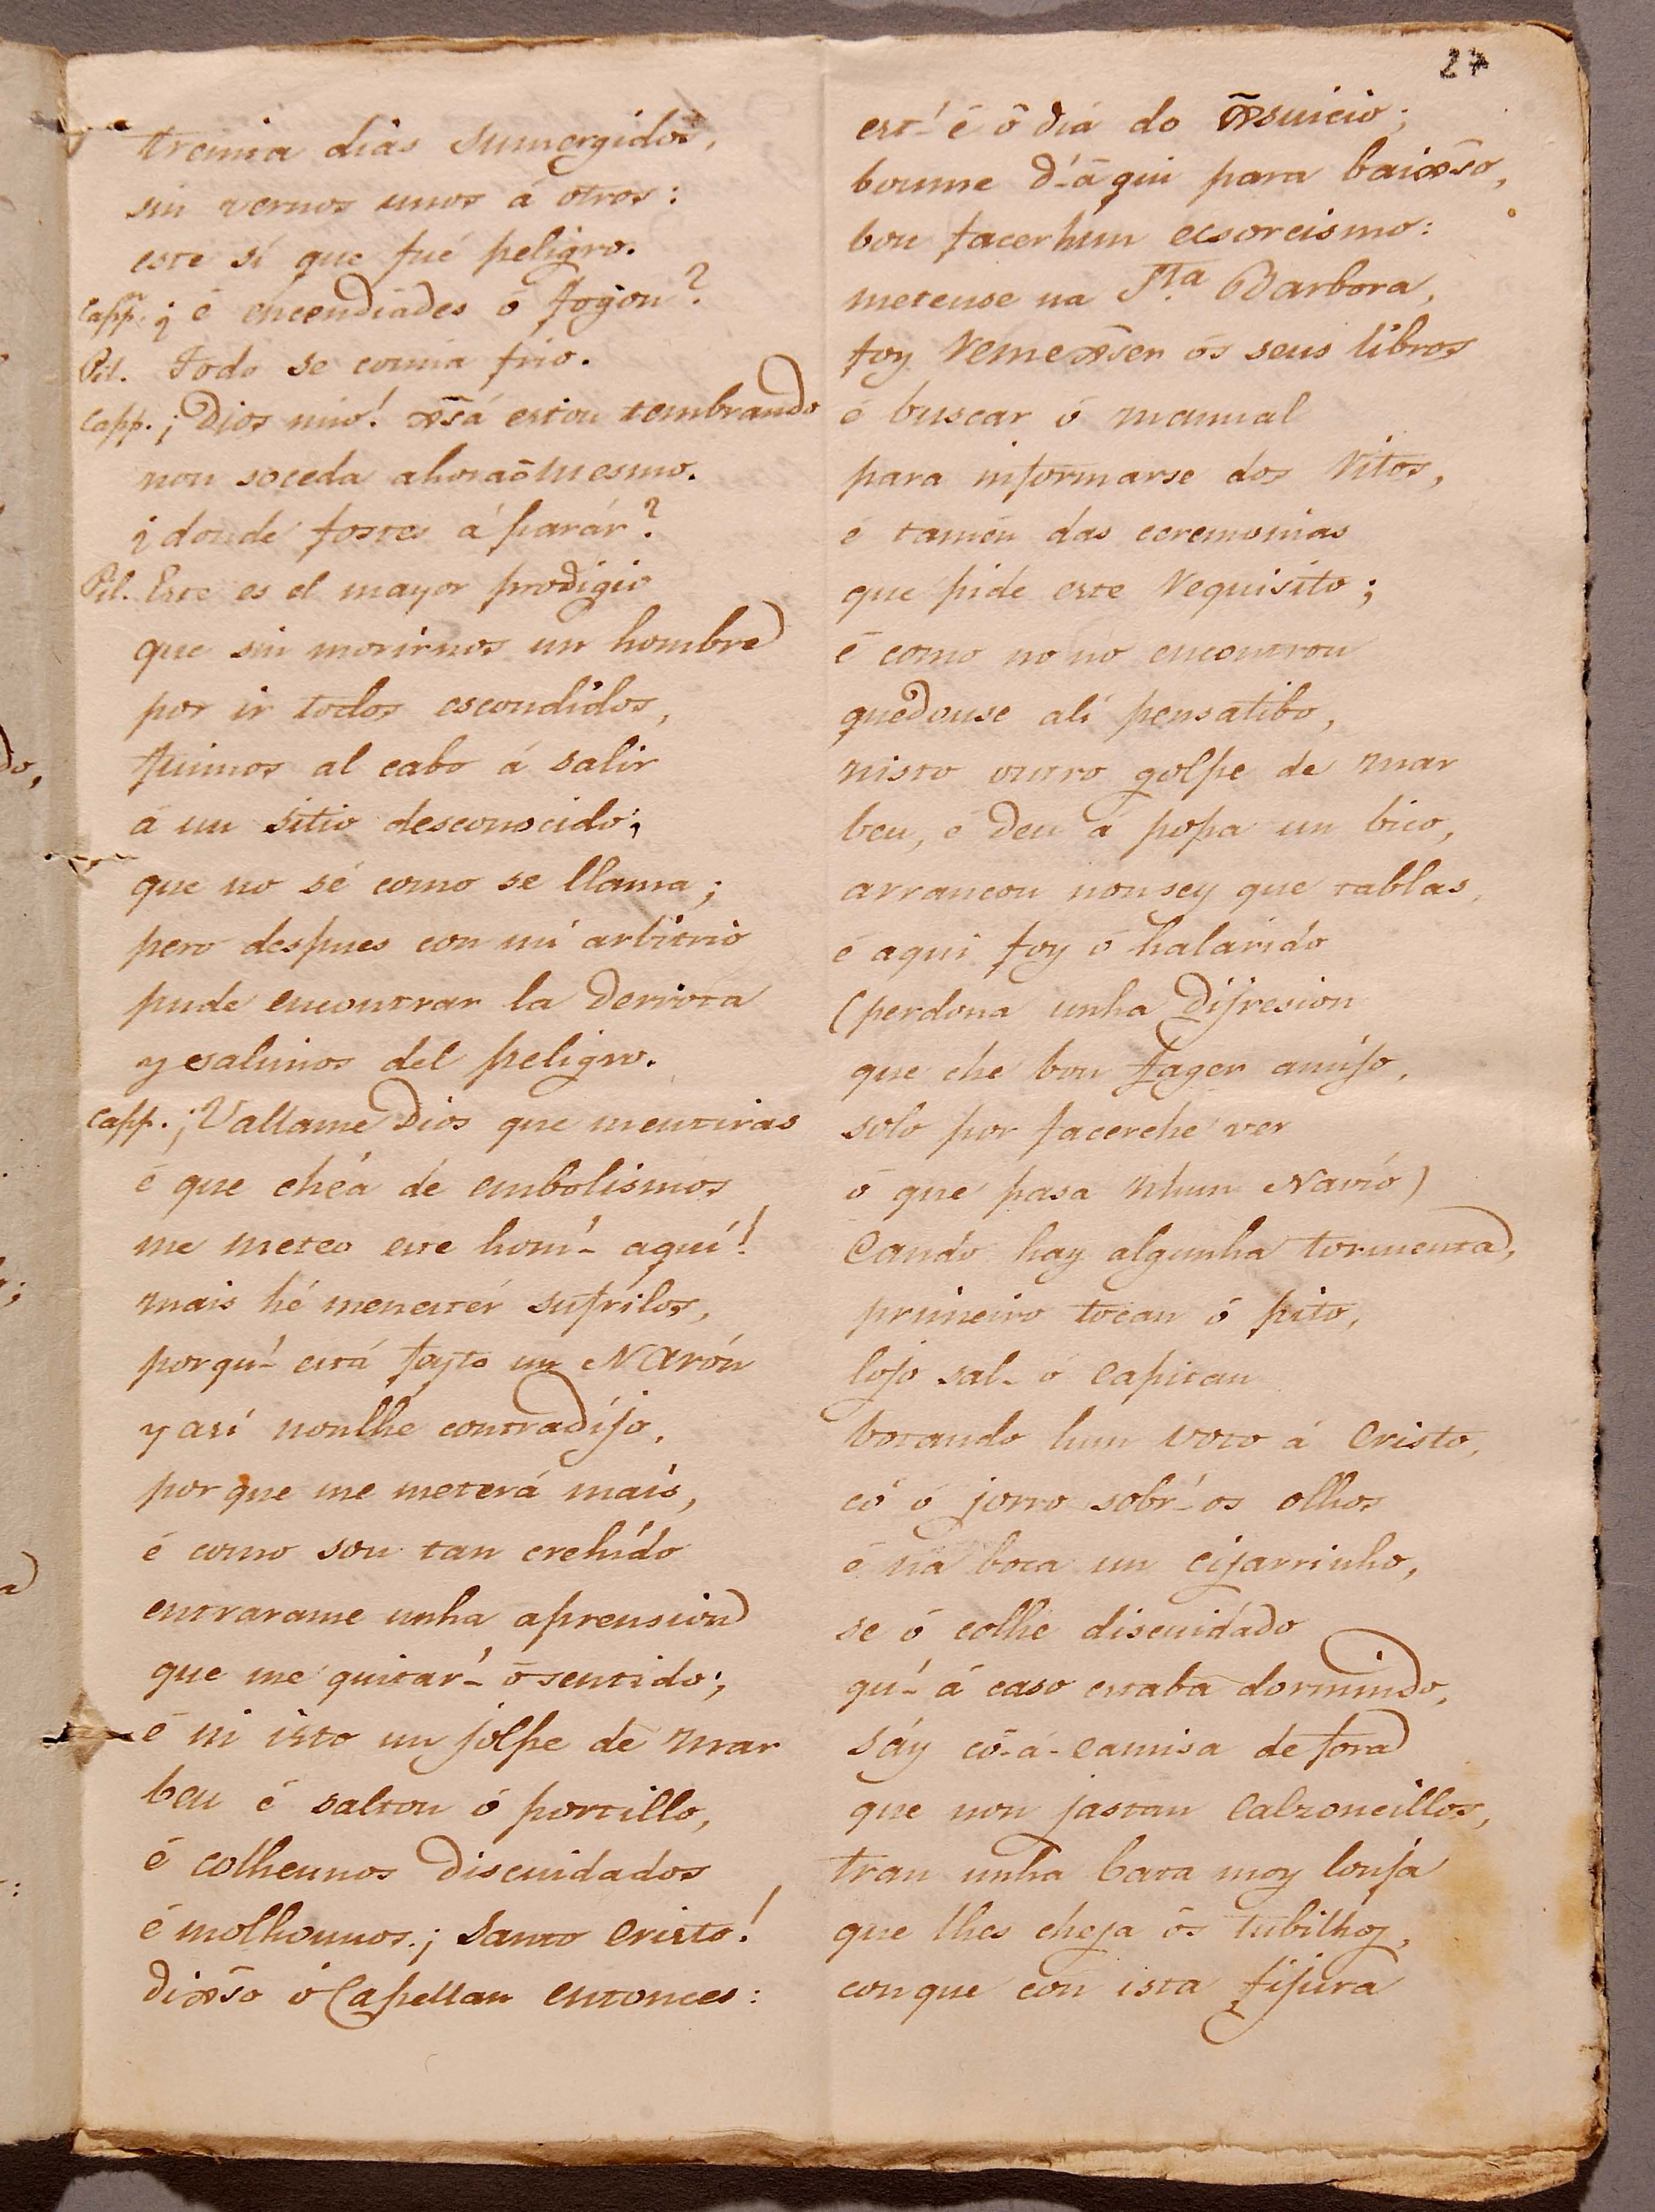 27
treinta dias sumergidos,
sin vernos unos á otros:
este sí que fué peligro.
Capp.n ¿é encendiádes ó fogon?
Pil. Todo se comia frio.
Capp. ¡Dios mio! x̃sá estou tembrando
non soceda ahora õ mesmo.
¿donde fostes á parár?
Pil. Este es el mayor prodigio
que sin morirnos un hombre
por ir todos escondidos,
fuimos al cabo á salir
á un sitio desconocido;
que no sé como se llama;
pero despues con mi arbitrio
pude encontrar la derrota
y salimos del peligro.
Capp. ¡Vallame Dios que mentiras
é que chéa de embolismos
me meteo este hom'- aquí!
mais hé menestér sufrilos,
porqu'- está feyto un Narón
y así nonlhe contradijo,
por que me meterá mais,
é como son tan crehído
entrarame unha aprension
que me quitar'- õ sentido;
é ni isto un jolpe de mar
beu é saltou ó portillo,
é colheunos discuidados
é molhounos; ¡Santo Cristo!
dix̃so ó Capellan entonces:
est'- é ô diá do x̃suicio;
boume d'-ãqui para baix̃so,
bou facerhun ecsorcismo:
meteuse na Sta. Barbora,
foy remex̃ser ós seus libros
é buscar ó manual
para informarse dos ritos,
é tamén das ceremonias
que pide este requisito;
é como no no encontrou
quedouse alí pensatibo,
nisto outro golpe de mar
beu, é deu á popa un bico,
arrancou nonsey que tablas,
é aqui foy ó halarido
(perdona unha dijresion
que che bou facer amijo,
solo por facerche ver
ó que pasa nhun Navío)
Cando hay algunha tormenta,
primeiro tocan ó pito,
lojo sal- ó Capitan
botando hun voto á Cristo,
có ó jorro sobr'-os olhos
é na boca un cijarrinho,
se ó colhe discuidado
qu'- á caso estaba dormindo,
sáy có-á-camisa de fora
que non jastan calzoncillos,
tran unha bata moy lonja
que lhes cheja ós tubilhos,
conque con ista fijura